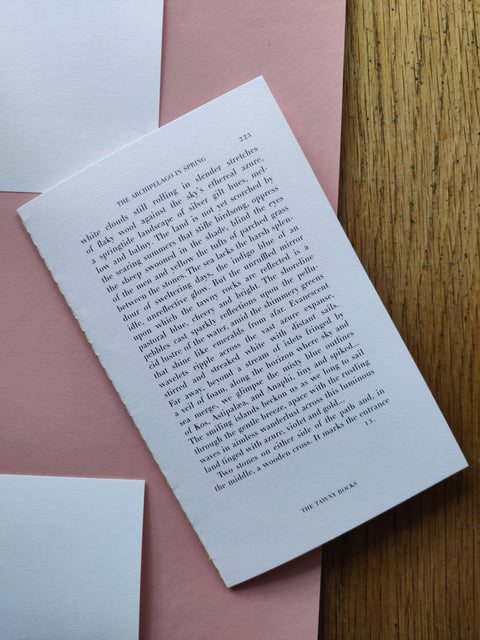 THE ARCHIPELAGO IN SPRING 225
white clouds still rolling in slender stretches
of flaky wool against the sky's ethereal azure,
a springtide landscape of silver gilt hues, mel-
low and balmy. The land is not yet scorched by
the searing summers that stifle birdsong, oppress
the sheep swooned in the shade, blind the eyes
of the men and yellow the tufts of parched grass
between the stones. The sea lacks the harsh splen-
dour of sweltering days, the indigo blue of an
idle, unreflective glory. But the unruffled mirror
upon which the tawny rocks are reflected is a
pastoral blue, cheery and bright. The shoreline
pebbles cast sparkly reflections upon the pellu-
cid lustre of the water, amid the shimmery greens
that shine like emeralds from afar. Evanescent
wavelets ripple across the vast azure expanse,
stirred and streaked white with distant sails.
Far away, beyond a stream of islets fringed by
a veil of foam, along the horizon where sky and
sea merge, we glimpse the misty blue outlines
of Kos, Astipalæa, and Anaphi, tiny and spiked...
The smiling islands beckon us as we long to sail
through the gentle breeze, space with the rustling
waves in aimless wanderlust across this luminous
land tinged with azure, violet and gold...
Two stones on either side of the path and, in
the middle, a wooden cross. It marks the entrance
15.
THE TAWNY ROCKS